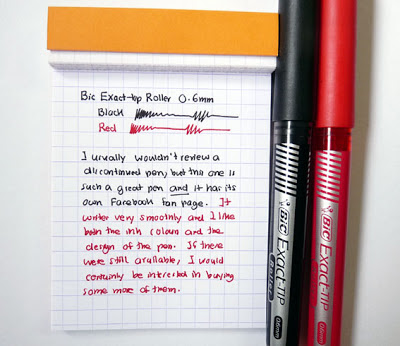 Bic Exact-tip Roller 0.6mm
Black
Red
I usually wouldn't review a
discontinued pen, but this one is
such a great pen and it has its
own Facebook fan page. It
writes very smoothly and I like
both the ink colours and the
design of the pen. If these
were still available, I would
certainly be interested in buying
some more of them.
BIC EXACT-TIP
ROLLER
BIC EXACT-TIP